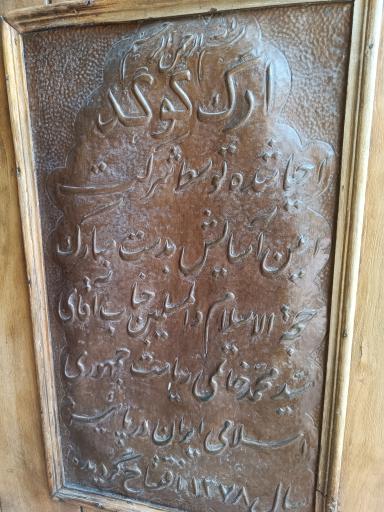 بسم الله الرحمن الرحیم
ارگ گوگد
احیا شده توسط شرکت
امین آسایش بدست مبارک
حجة الاسلام والمسلمین جناب آقای
سید محمد خاتمی ریاست جمهوری
اسلامی ایران در پاییز
سال ۱۳۷۸ افتتاح گردیده